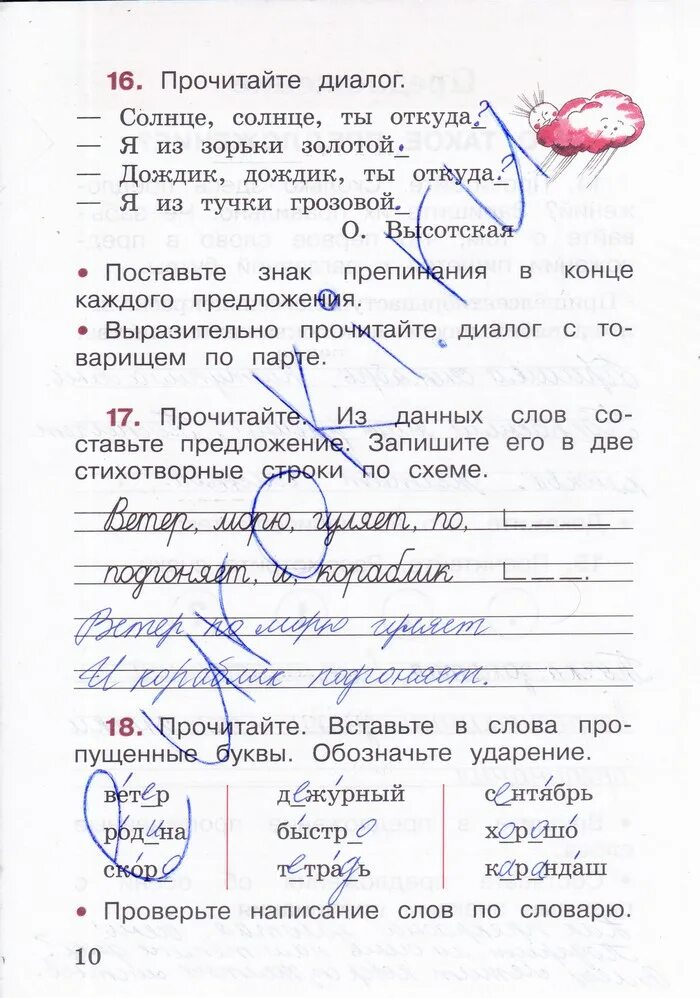 16. Прочитайте диалог.
— Солнце, солнце, ты откуда?
— Я из зорьки золотой.
— Дождик, дождик, ты откуда?
— Я из тучки грозовой.
О. Высотская
• Поставьте знак препинания в конце
каждого предложения.
• Выразительно прочитайте диалог с то-
варищем по парте.
17. Прочитайте. Из данных слов со-
ставьте предложение. Запишите его в две
стихотворные строки по схеме.
Ветер, морю, гуляет, по,
подгоняет, и, кораблик
Ветер по морю гуляет
И кораблик подгоняет.
18. Прочитайте. Вставьте в слова про-
пущенные буквы. Обозначьте ударение.
ве́тер дежу́рный сентя́брь
роди́на бы́стро хорошо́
ско́ро тетра́дь каранда́ш
• Проверьте написание слов по словарю.
10